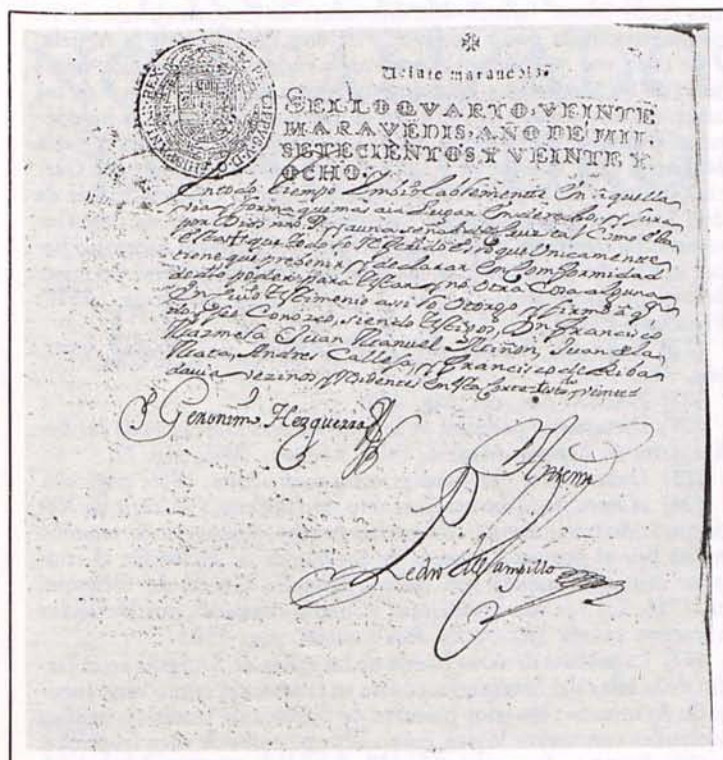 Veinte maravedis.
SELLO QVARTO, VEINTE
MARAVEDIS, AÑO DE MIL
SETECIENTOS, Y VEINTE Y
OCHO.
HISPANIARVM REX
entodo tiempo Imbiolablemente En aquella
via y forma que mas aia Lugar Enderecho, y Jura
por Dios nro S.r y a una señal de Cruz tal Como esta
que todo lo Referido es lo que Unicamente
tiene que prebenir y declarar En Comformidad
de dho poder para testar y no otra Cosa alguna
En Cuio testimonio assi lo otorgo y firmo a q.n
doy fee Conozco, siendo testigos, Dn Francisco
Marmesa Juan Manuel Miñon, Juan de la
Mata, Andres Calleja, y Francisco de Riba
davia vezinos y Residentes en esta Corte
Geronimo Hezguerra
Ante mi
Pedro del Campillo